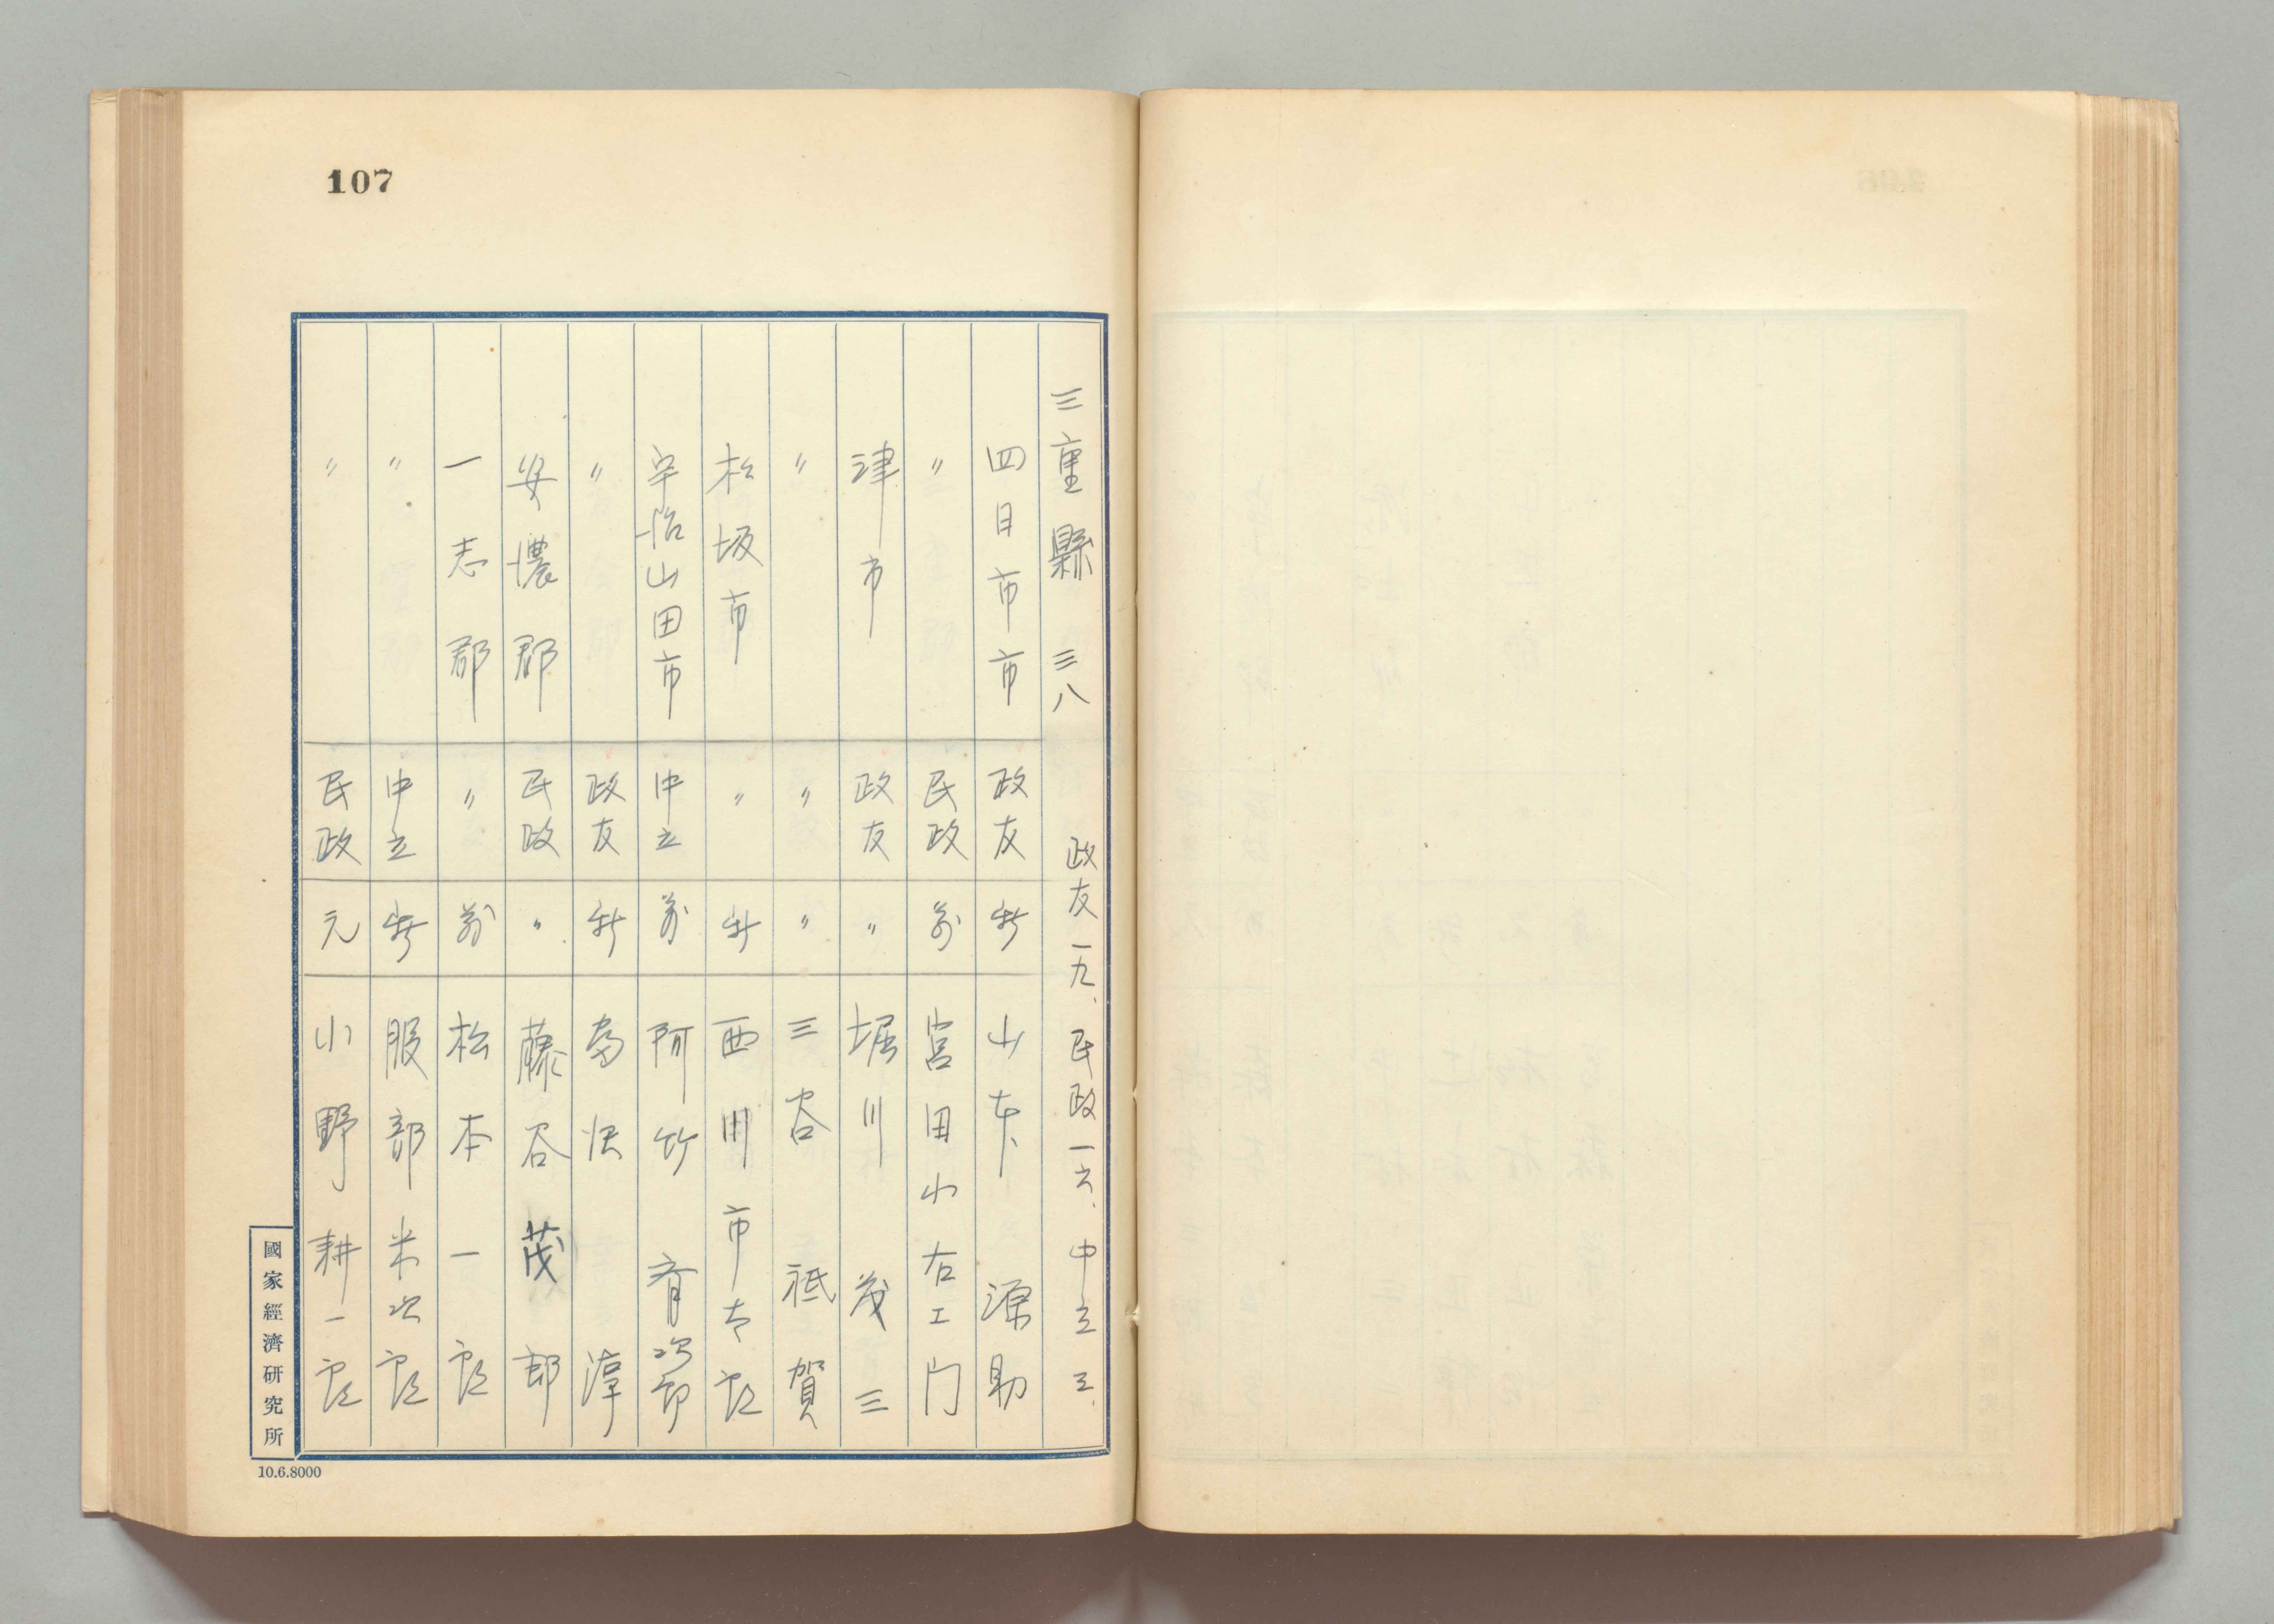 107
三重縣 三八 政友一九、民政一六、中立三、
四日市市 政友 新 山本 源助
〃 民政 前 宮田小右エ門
津市 政友 〃 堀川 茂三
〃 〃 〃 三谷 祗賀
松坂市 〃 新 西川市太郎
宇治山田市 中立 前 阿竹 斉次郎
〃 政友 新 淳
安濃郡 民政 〃 藤谷茂郎
一志郡 〃 前 松本一郎
〃 中立 新 服部米次郎
〃 民政 元 小野耕一郎
國家經濟研究所
10.6.8000